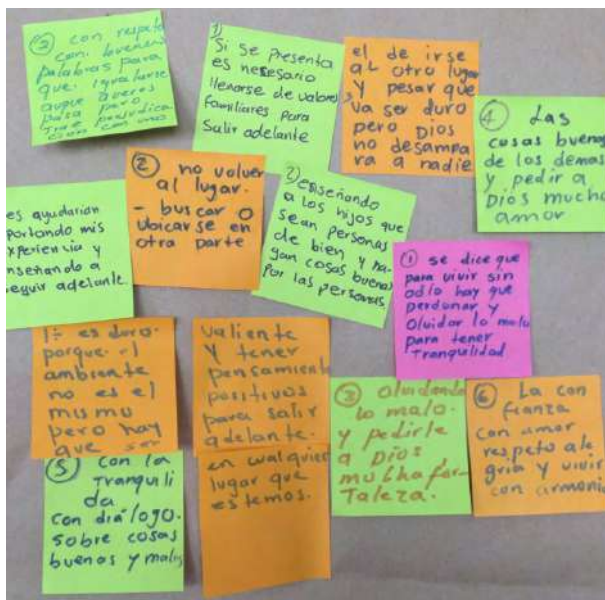 ② con respeto
con buenas
palabras para
que igualarse
auque averes
pasa pero
trae perjudica
cion con uno
1)
Si se presenta
es nesesario
llenarse de valores
familiares para
Salir adelante
el de irse
al otro lugar
y pesar que
va ser duro
pero Dios
no desampa
ra a nadie
④ Las
cosas buenas
de los demas
y pedir a
Dios mucho
amor
es ayudarian
portando mis
xperiencia y
nseñando a
eguir adelante.
② no volver
al lugar.
- buscar o
ubicarse en
otra parte
2) enseñando
a los hijos que
sean personas
de bien y ha-
gan cosas buenas
Por las personas.
① se dice que
para vivir sin
odio hay que
perdonar y
Olvidar lo malo
para tener
Tranquilidad
1: es duro.
porque. el
ambiente
no es el
mismo
pero hay
que ser
valiente
y tener
pencamiento
positivos
para salir
adelante.
en cualquier
lugar que
estemos.
③ Olvidando
lo malo.
y pedirle
a Dios,
mucha for-
Taleza.
⑥ La con
fianza
con amor
respeto ale
gria y vivir
con armonia
⑤ con la
Tranquili
da
con diálogo.
sobre cosas
buenas y malas